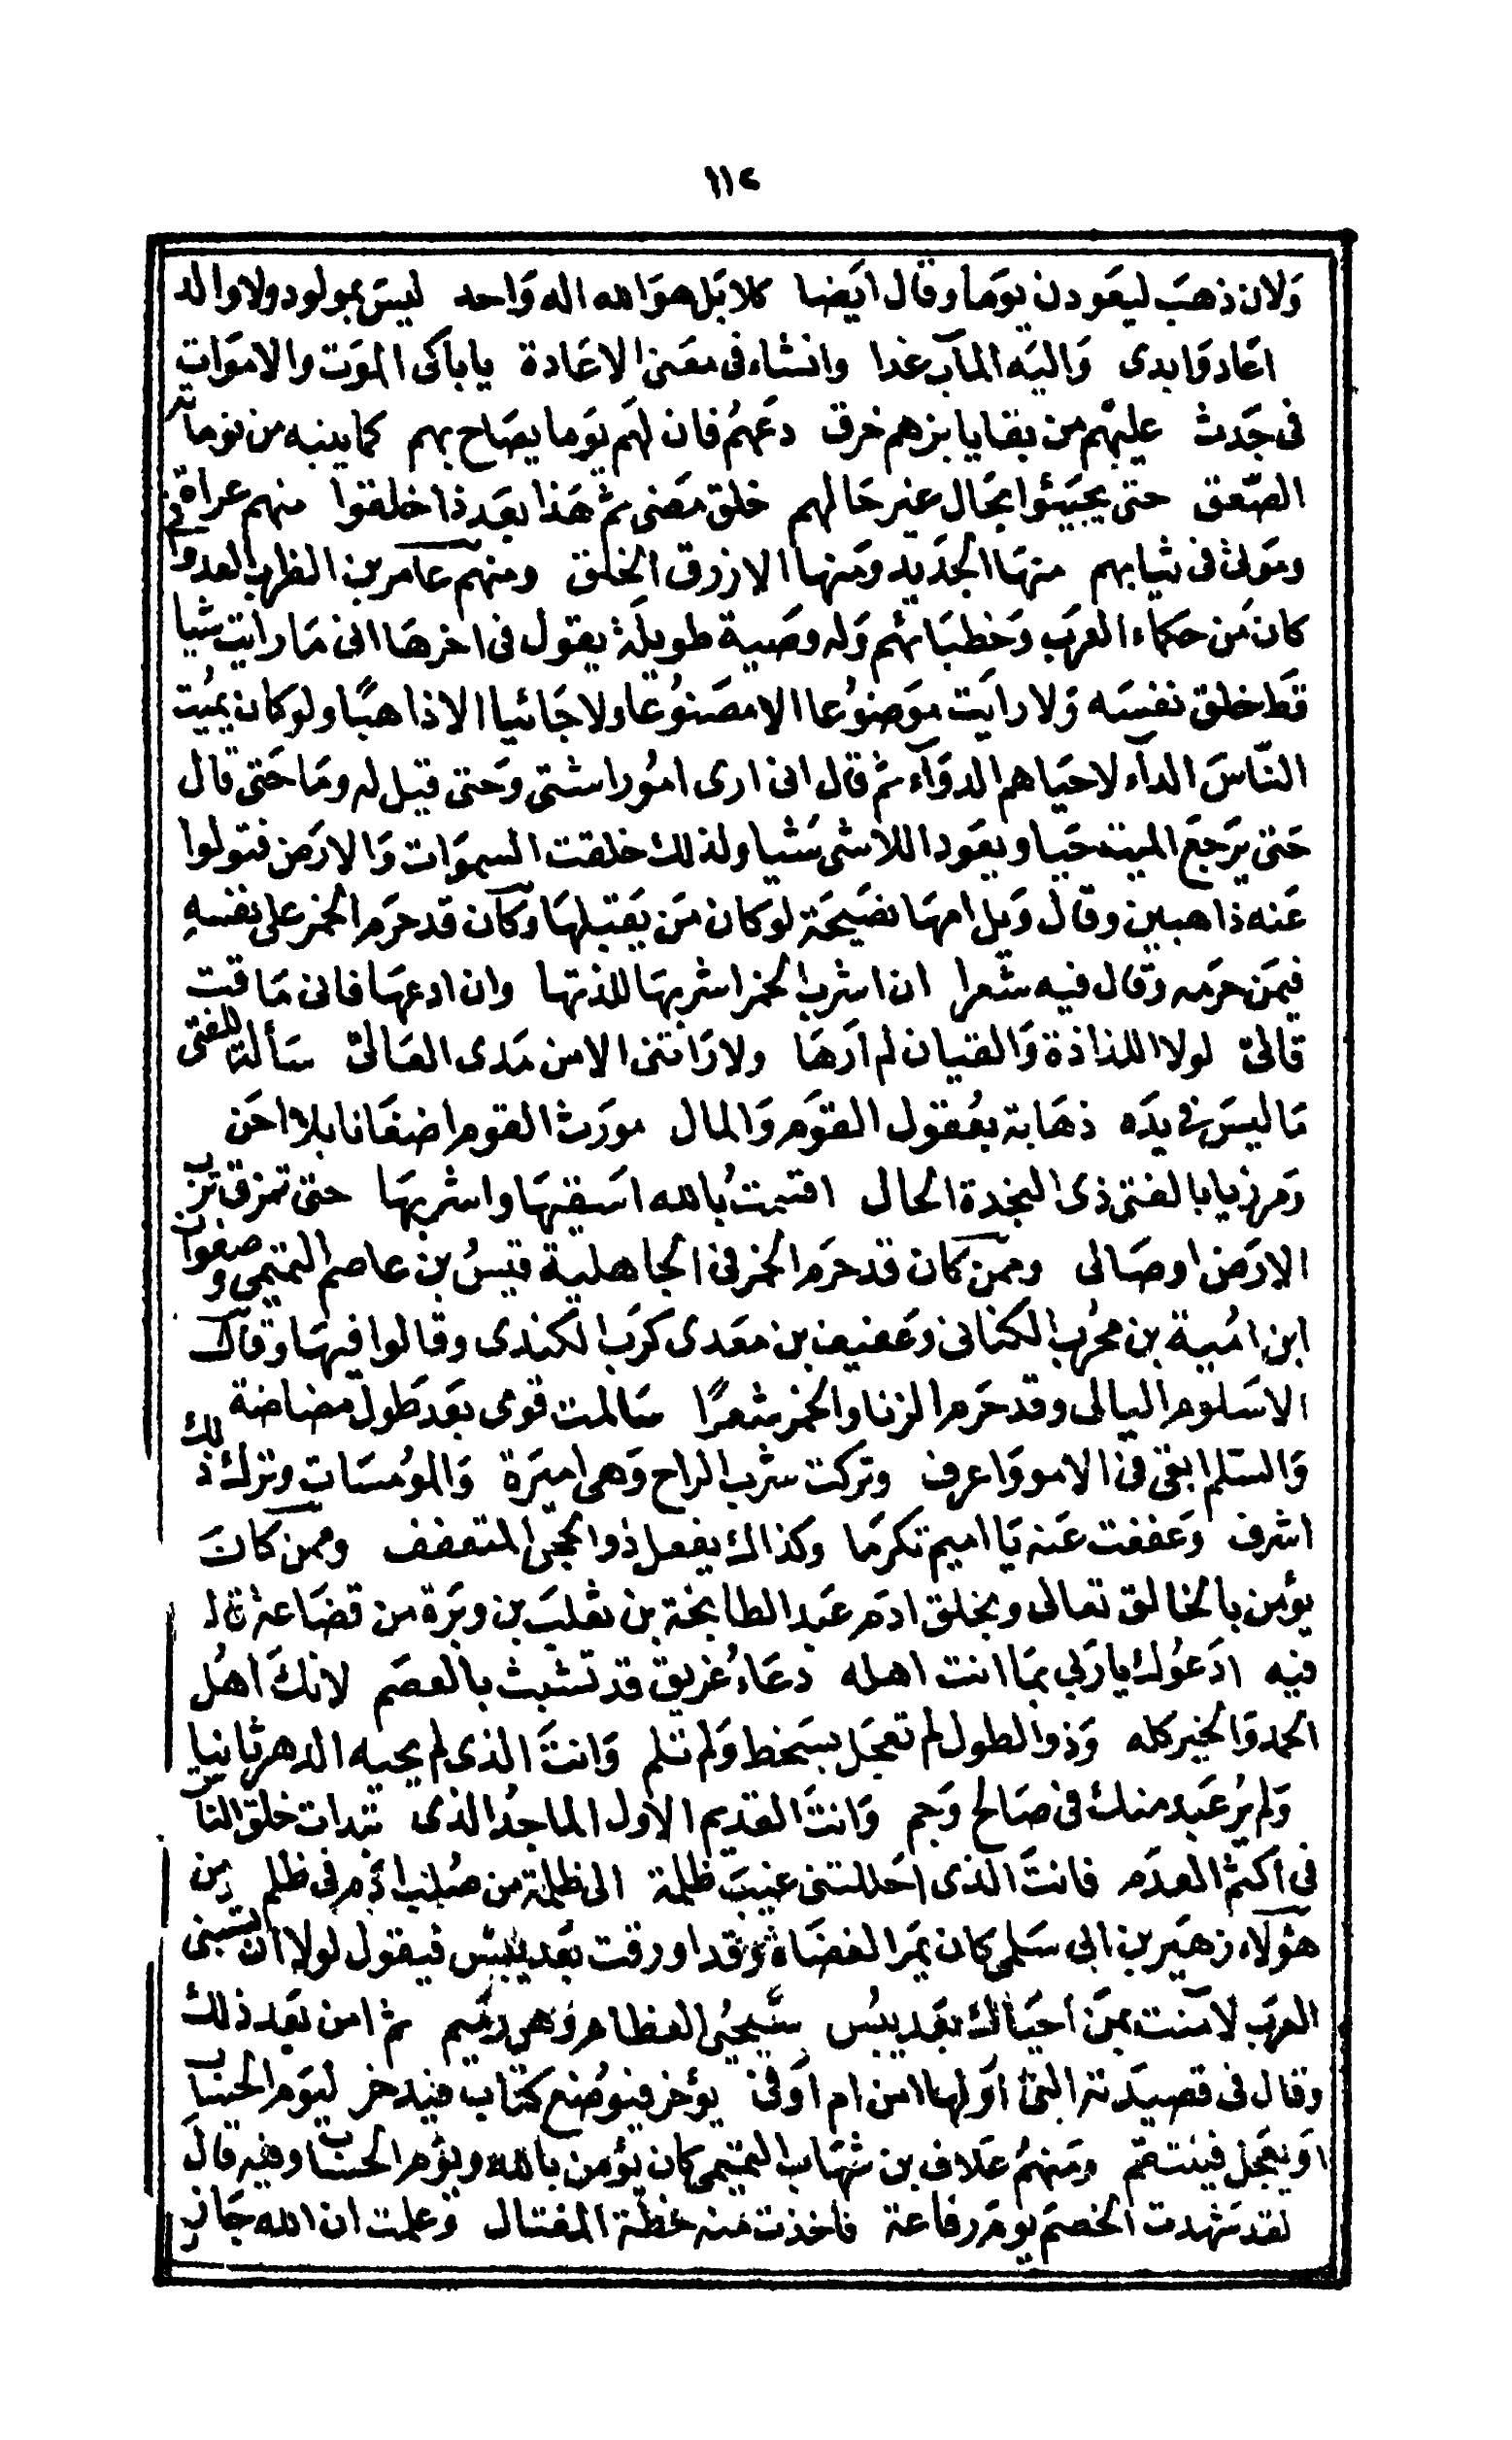 ١١٢
ولان ذهب ليعودن يوما وقال ايضا كلا بل هو الله اله واحد ليس بمولود ولا والد
اعاد وابدى واليه المآب غدا وانشاء فى معنى الاعادة يا باكى الموت والاموات
فى جدث عليهم من بقايا بزهم خرق دعهم فان لهم يوما يصاح بهم كما ينبه من نوماته
الصعق حتى يجيئوا بحال غير حالهم خلق مضى ثم هذا بعد ذا خلقوا منهم عراة
وموتى فى ثيابهم منها الجديد ومنها الازرق الخلق ومنهم عامر بن الظرب العدوانى
كان من حكماء العرب وخطبائهم وله وصية طويلة يقول فى اخرها انى ما رايت شيا
قط خلق نفسه ولا رايت موضوعا الا مصنوعا ولا جائيا الا ذاهبا ولو كان يميت
الناس الدآء لاحياهم الدوآء ثم قال انى ارى امورا شتى وحتى قيل له وما حتى قال
حتى يرجع الميت حيا ويعود اللاشى شيا ولذلك خلقت السموات والارض فتولوا
عنه ذاهبين وقال ويل امها نصيحة لو كان من يقبلها وكان قد حرم الخمر على نفسه
فيمن حرمه وقال فيه شعرا ان اشرب الخمر اشربها للذتها وان ادعها فانى ماقت
قالى لولا اللذاذة والقيان لم ارها ولا راتنى الا من مدى العالى سألة للفتى
ما ليس فى يده ذهابة بعقول القوم والمال مورث القوم اضغانا بلا احن
ومرزيا بالفتى ذى النجدة الحال اقسمت بالله اسقيها واشربها حتى تمزق ترب
الارض اوصالى وممن كان قد حرم الخمر فى الجاهلية قيس بن عاصم التميمى وصفوان
ابن امية بن محرب الكنانى وعفيف بن معدى كرب الكندى وقالوا فيها وقال
الاسلوم اليالى وقد حرم الزنا والخمر شعرا سالمت قومى بعد طول مضاضة
والسلم ابقى فى الامور واعرف وتركت شرب الراح وهى اميرة والمومسات وترك ذلك
اشرف وعففت عنه يا اميم تكرما وكذاك يفعل ذو الحجى المتعفف وممن كان
يؤمن بالخالق تعالى وبخلق ادم عبد الطابخة بن ثعلب بن وبرة من قضاعة قال
فيه ادعوك يا ربى بما انت اهله دعاء غريق قد تشبث بالعصم لانك اهل
الحمد والخير كله وذو الطول لم تعجل بسخط ولم تلم وانت الذى لم يحيه الدهر ثانيا
ولم ير عبد منك فى صالح وجم وانت القديم الاول الماجد الذى تبدات خلق الناس
فى اكثم العدم فانت الذى احللتنى غيب ظلمة الى ظلمة من صلب ادم فى ظلم ومن
هؤلاء زهير بن ابى سلمى كان يمر الغضاة وقد اورقت بعد يبس فيقول لولا ان تسبنى
العرب لآمنت بمن احياك بعد يبس سيحيى العظام وهى رميم ثم امن بعد ذلك
وقال فى قصيدته التى اولها امن ام اوفى يؤخر فيوضع كتاب فيدخر ليوم الحساب
او يعجل فينتقم ومنهم علاف بن شهاب التميمى كان يؤمن بالله ويوم الحساب وفيه قال
لقد شهدت الخصم يوم رفاعة فاخذت منه خطة المقتال وعلمت ان الله جاز